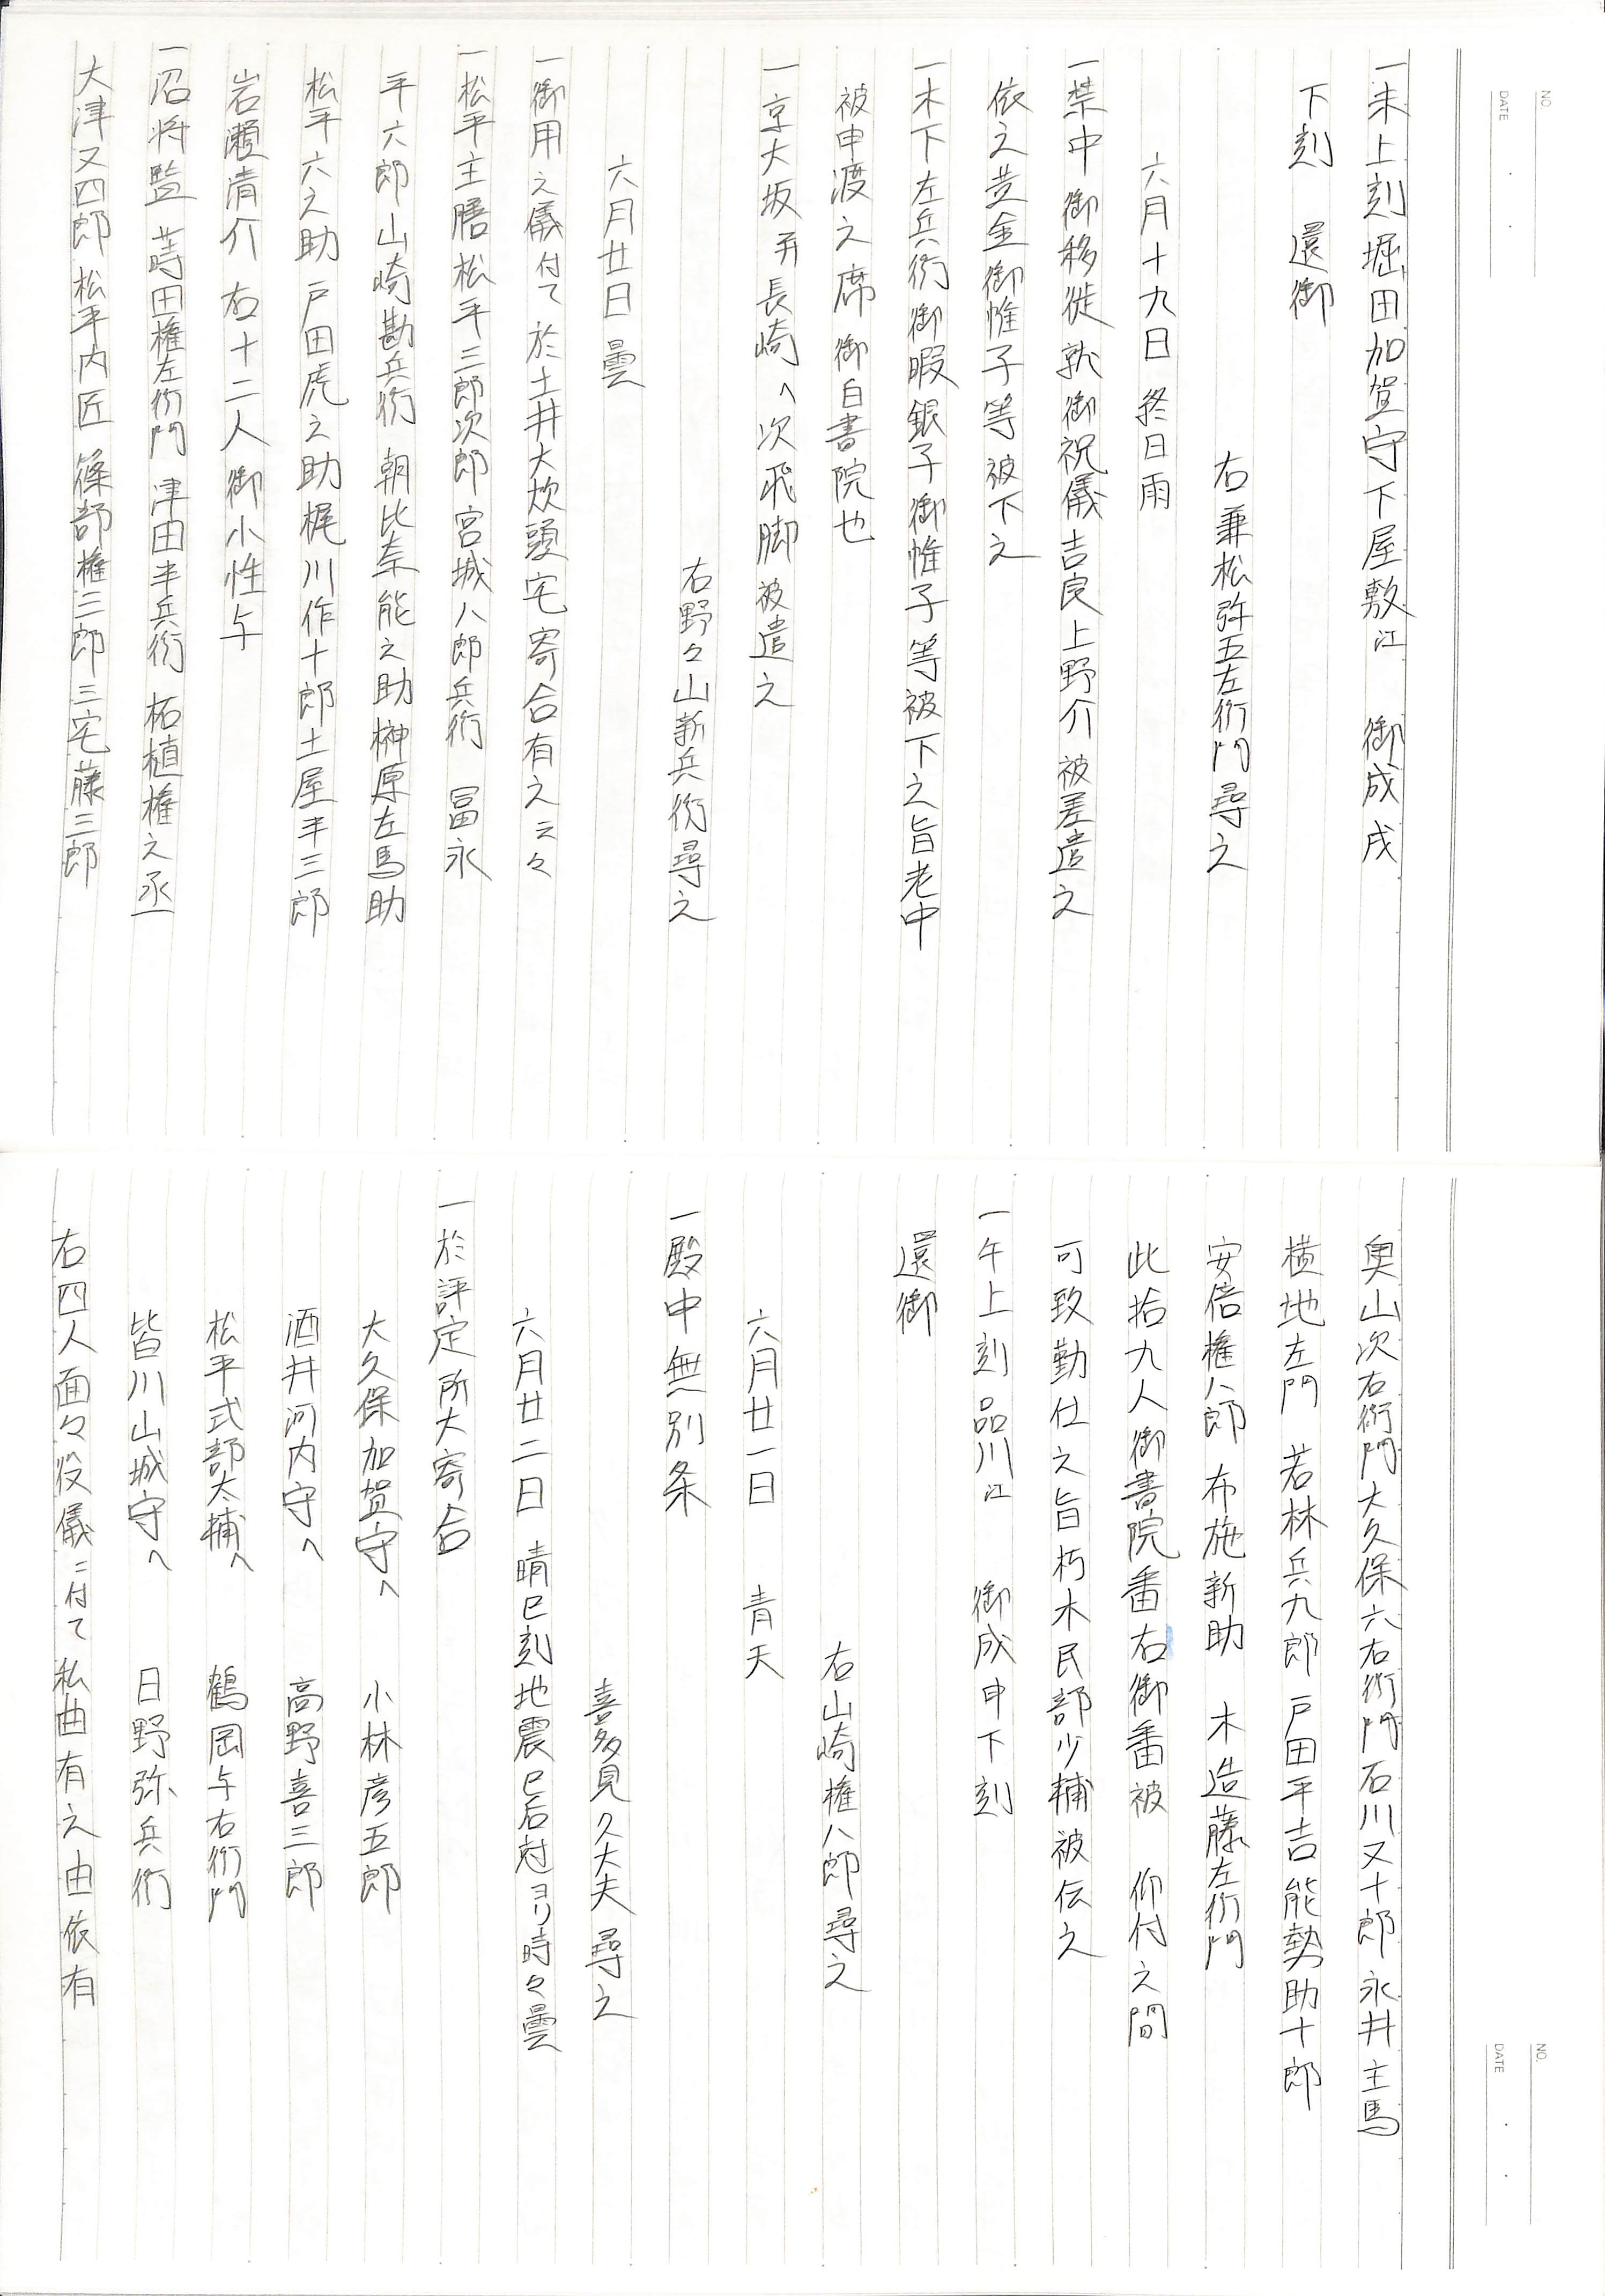 NO.
DATE
一未上刻堀田加賀守下屋敷江　御成戌
下刻　還御
右兼松弥五左衛門尋之
六月十九日 終日雨
一禁中御移徙就御祝儀吉良上野介被差遣之
依之黄金御帷子等被下之
一木下左兵衛御暇銀子御帷子等被下之旨老中
被申渡之席御白書院也
一京大坂并長崎へ次飛脚被遣之
右野々山新兵衛尋之
六月廿日 曇
一御用之儀付て於土井大炊頭宅寄合有之云々
一松平主膳松平三郎次郎宮城八郎兵衛　冨永
平六郎山崎勘兵衛朝比奈能之助榊原左馬助
松平六之助戸田虎之助梶川作十郎土屋半三郎
岩瀬清介　右十二人御小性与
一沼将監　蒔田権左衛門　津田半兵衛　柘植権之丞
大津又四郎松平内匠　篠部権三郎三宅藤三郎
NO.
DATE
奥山次右衛門大久保六右衛門石川又十郎永井主馬
横地左門　若林兵九郎　戸田平吉能勢助十郎
安倍権八郎　布施新助　木造藤左衛門
此拾九人御書院番右御番被　仰付之間
可致勤仕之旨朽木民部少輔被伝之
一午上刻品川江　御成申下刻
還御
右山崎権八郎尋之
六月廿一日　青天
一殿中無別条
喜多見久大夫尋之
六月廿二日　晴巳刻地震巳后尅ヨリ時々曇
一於評定所大寄合
大久保加賀守へ　小林彦五郎
酒井河内守へ　高野喜三郎
松平式部太輔へ　鶴岡与右衛門
皆川山城守へ　日野弥兵衛
右四人面々役儀ニ付て私曲有之由依有